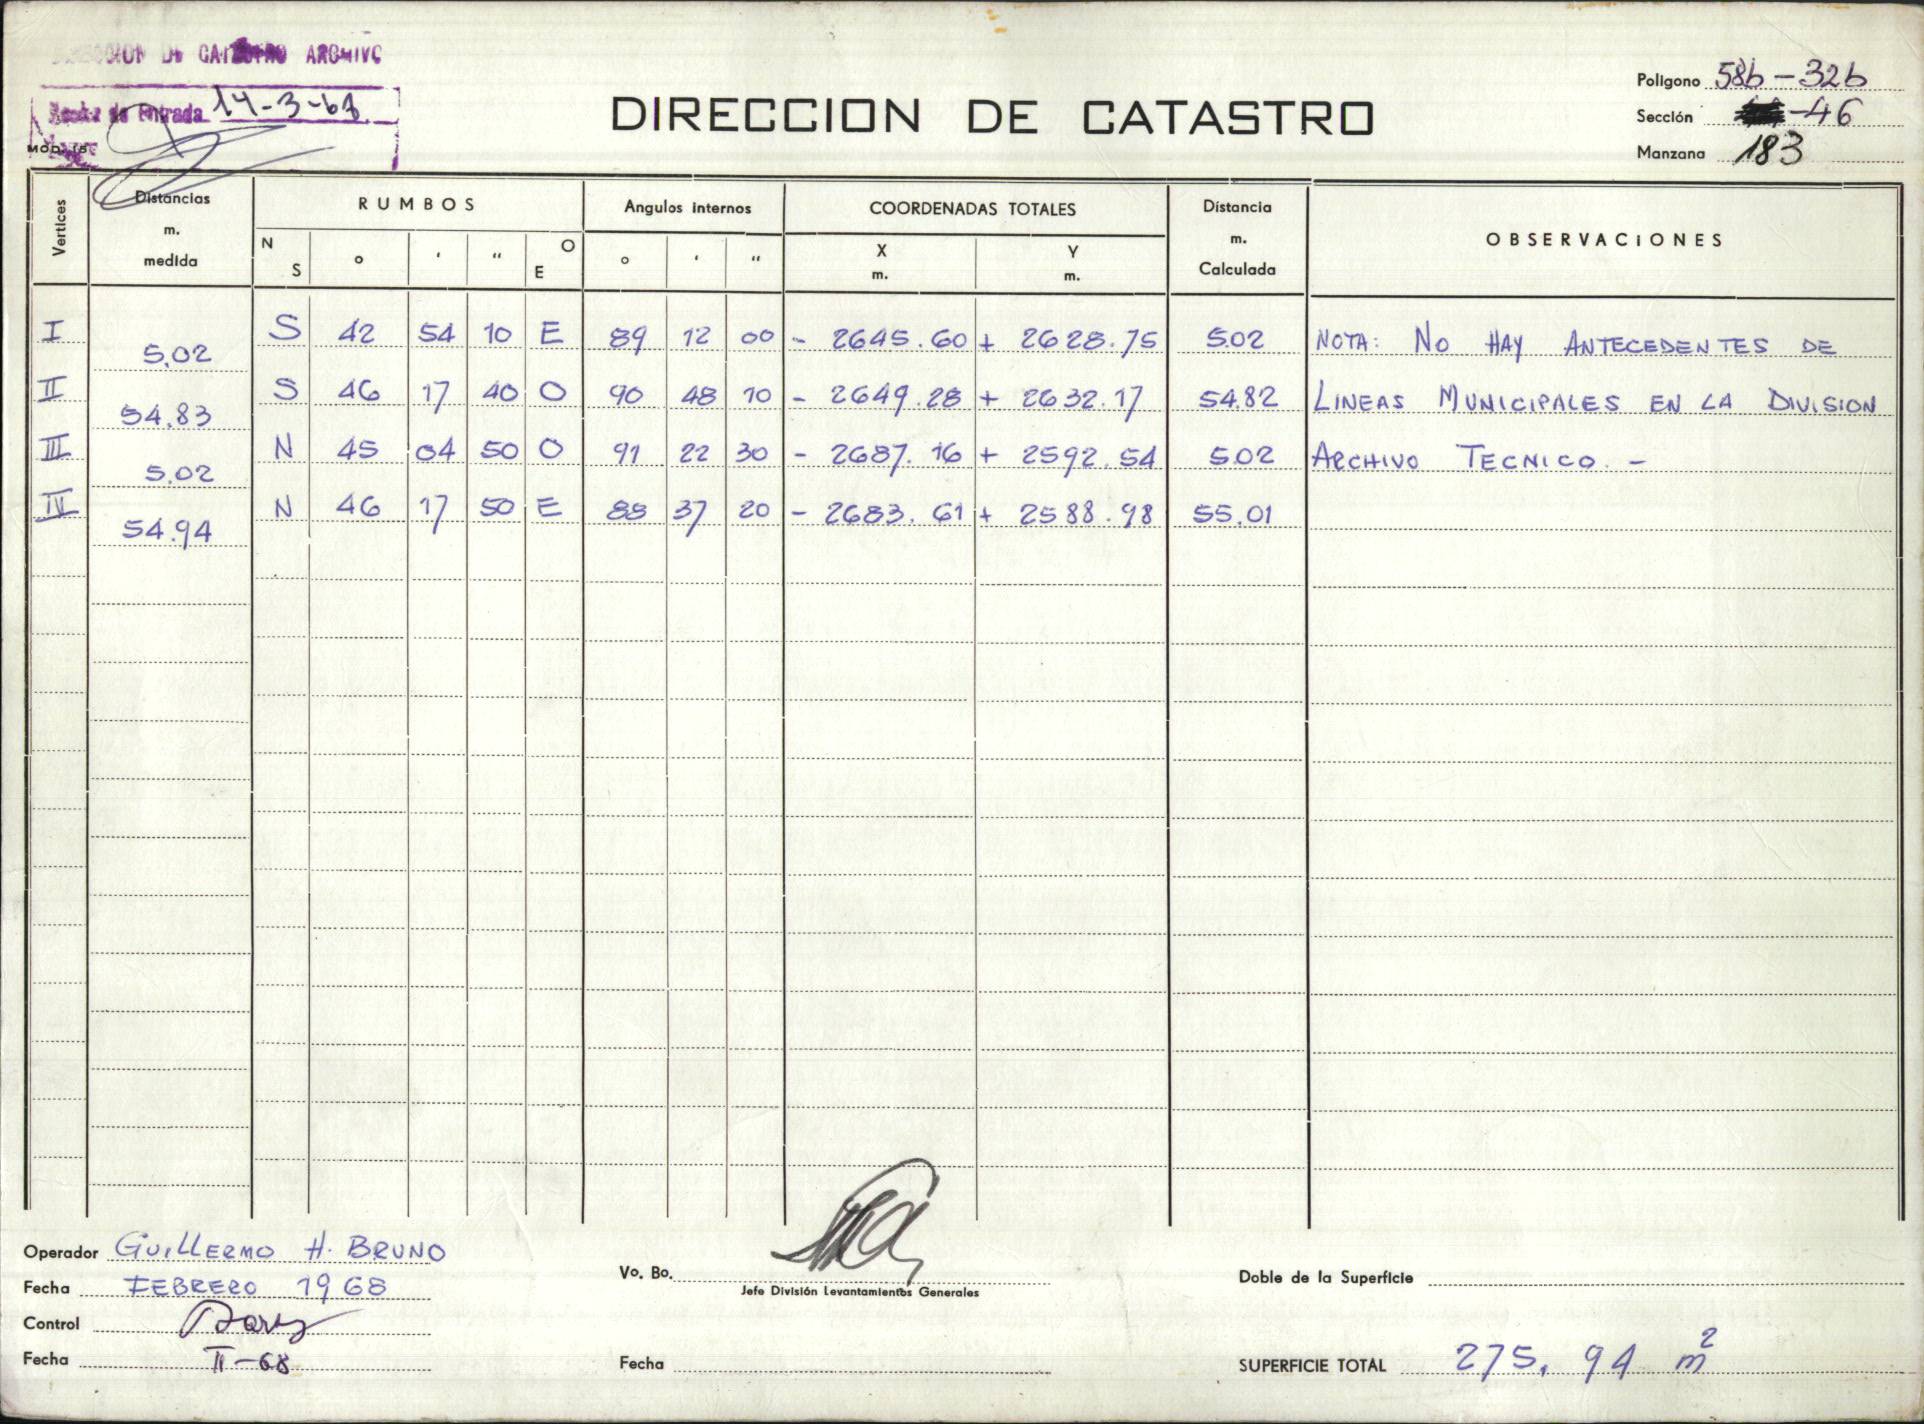 DIRECCION DE CATASTRO ARCHIVO
de Entrada 14-3-68
MOD. 15
DIRECCION DE CATASTRO
Poligono 58b-32b
Sección -46
Manzana 183
Vertices
Distancias
m.
medida
RUMBOS
N S ° ' " O E
Angulos internos
° ' "
COORDENADAS TOTALES
X
m.
Y
m.
Distancia
m.
Calculada
OBSERVACIONES
I 5.02 S 42 54 10 E 89 12 00 - 2645.60 + 2628.75 5.02 NOTA: NO HAY ANTECEDENTES DE
II 54.83 S 46 17 40 O 90 48 10 - 2649.28 + 2632.17 54.82 LINEAS MUNICIPALES EN LA DIVISION
III 5.02 N 45 04 50 O 91 22 30 - 2687.16 + 2592.54 5.02 ARCHIVO TECNICO. -
IV 54.94 N 46 17 50 E 88 37 20 - 2683.61 + 2588.98 55.01
Operador GUILLERMO H. BRUNO
Fecha FEBRERO 1968
Control
Fecha II-68
Vo. Bo.
Jefe División Levantamientos Generales
Fecha
Doble de la Superficie
SUPERFICIE TOTAL 275.94 m²